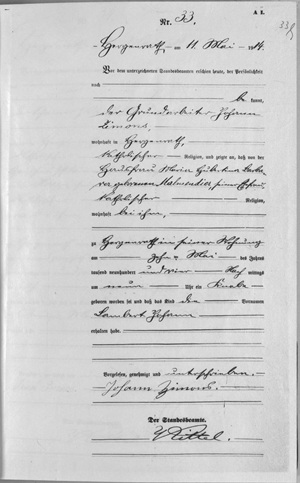 A 1.
Nr. 33.
Hergenrath, am 11. Mai 1904.
Vor dem unterzeichneten Standesbeamten erschien heute, der Persönlichkeit
nach
be kannt,
der Grundarbeiter Johann
Simons,
wohnhaft in Hergenrath,
katholischer Religion, und zeigte an, daß von der
Hausfrau Maria Hubertina Barba
ra geborenen seiner Ehefrau
katholischer Religion,
wohnhaft bei ihm,
zu Hergenrath in seiner Wohnung
am Mai des Jahres
tausend neunhundert und vier Nach mittags
um neun Uhr ein Knabe
geboren worden sei und daß das Kind die Vornamen
Lambert Johann
erhalten habe.
Vorgelesen, genehmigt und unterschrieben.
Johann Simons.
Der Standesbeamte.